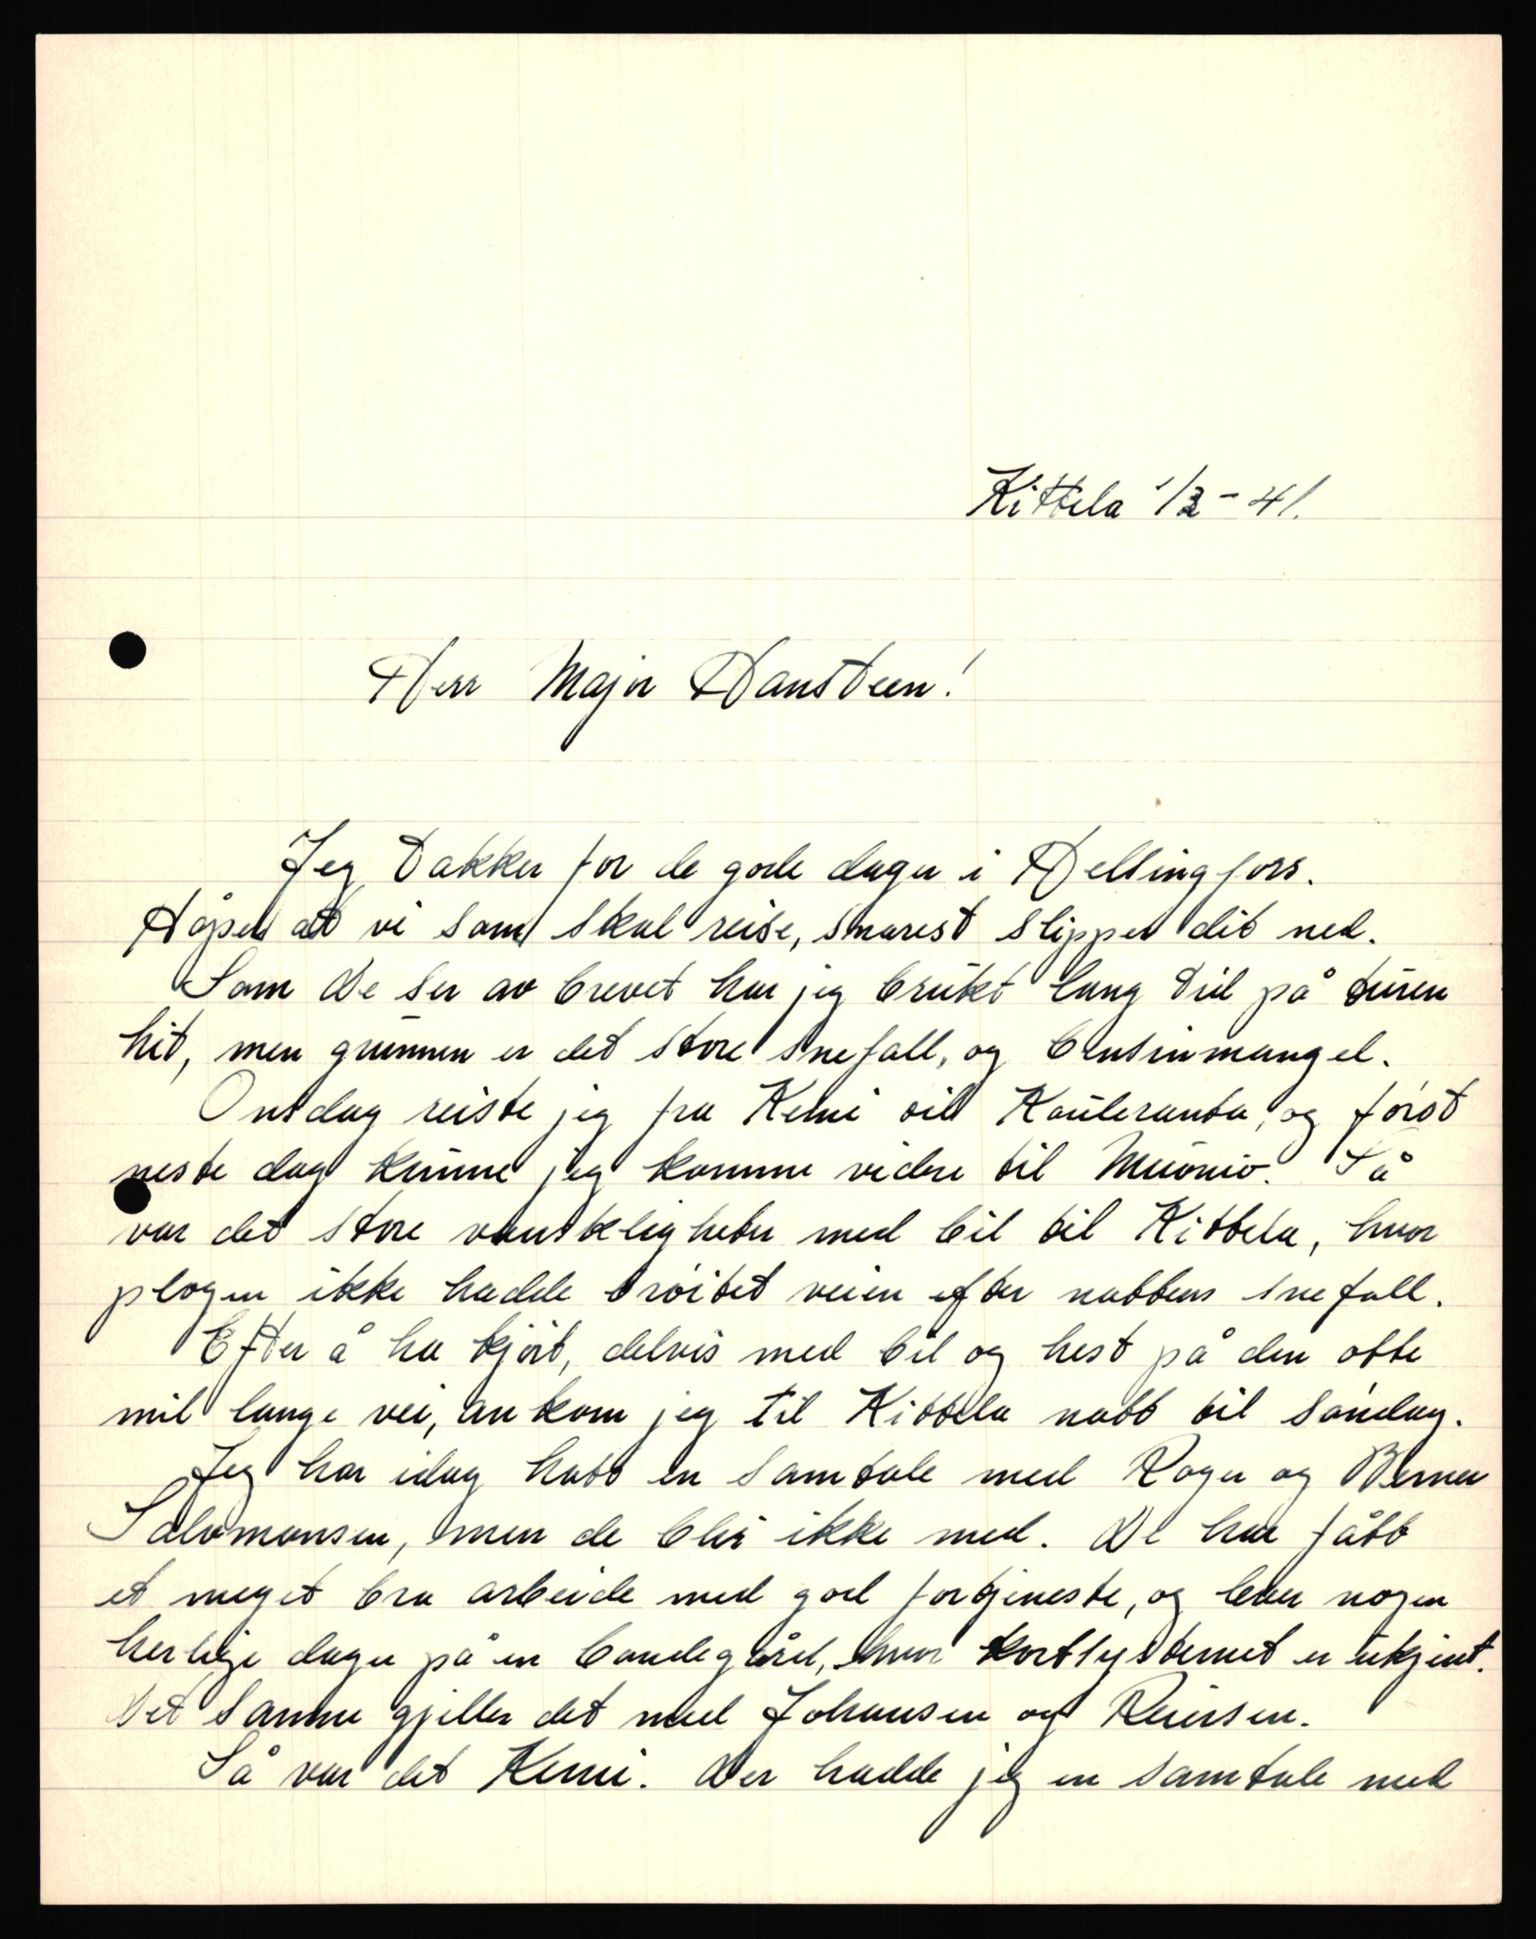 Kittela 1/2-41.
Herr Major Hansteen!
Jeg takker for de gode dager i Helsingfors.
Håper at vi som skal reise, snarest slipper dit ned.
Som De ser av brevet har jeg brukt lang tid på turen
hit, men grunnen er det store snefall, og bensinmangel.
Onsdag reiste jeg fra Kemi til Kauleranta, og først
neste dag kunne jeg komme videre til Muonio. Så
var det store vanskligheter med bil til Kittela, hvor
plogen ikke hadde brøitet veien efter nattens snefall.
Efter å ha kjørt, delvis med bil og hest på den otte
mil lange vei, ankom jeg til Kittela natt til søndag.
Jeg har idag hatt en samtale med Roger og Berner
Salomonsen, men de blir ikke med. De har fått
et meget bra arbeide med god fortjeneste, og lever nogen
herlige dager på en bondegård, hvor kortsystemet er ukjent.
Det samme gjeller det med Johansen og Reiersen.
Så var det Kemi. Der hadde jeg en samtale med